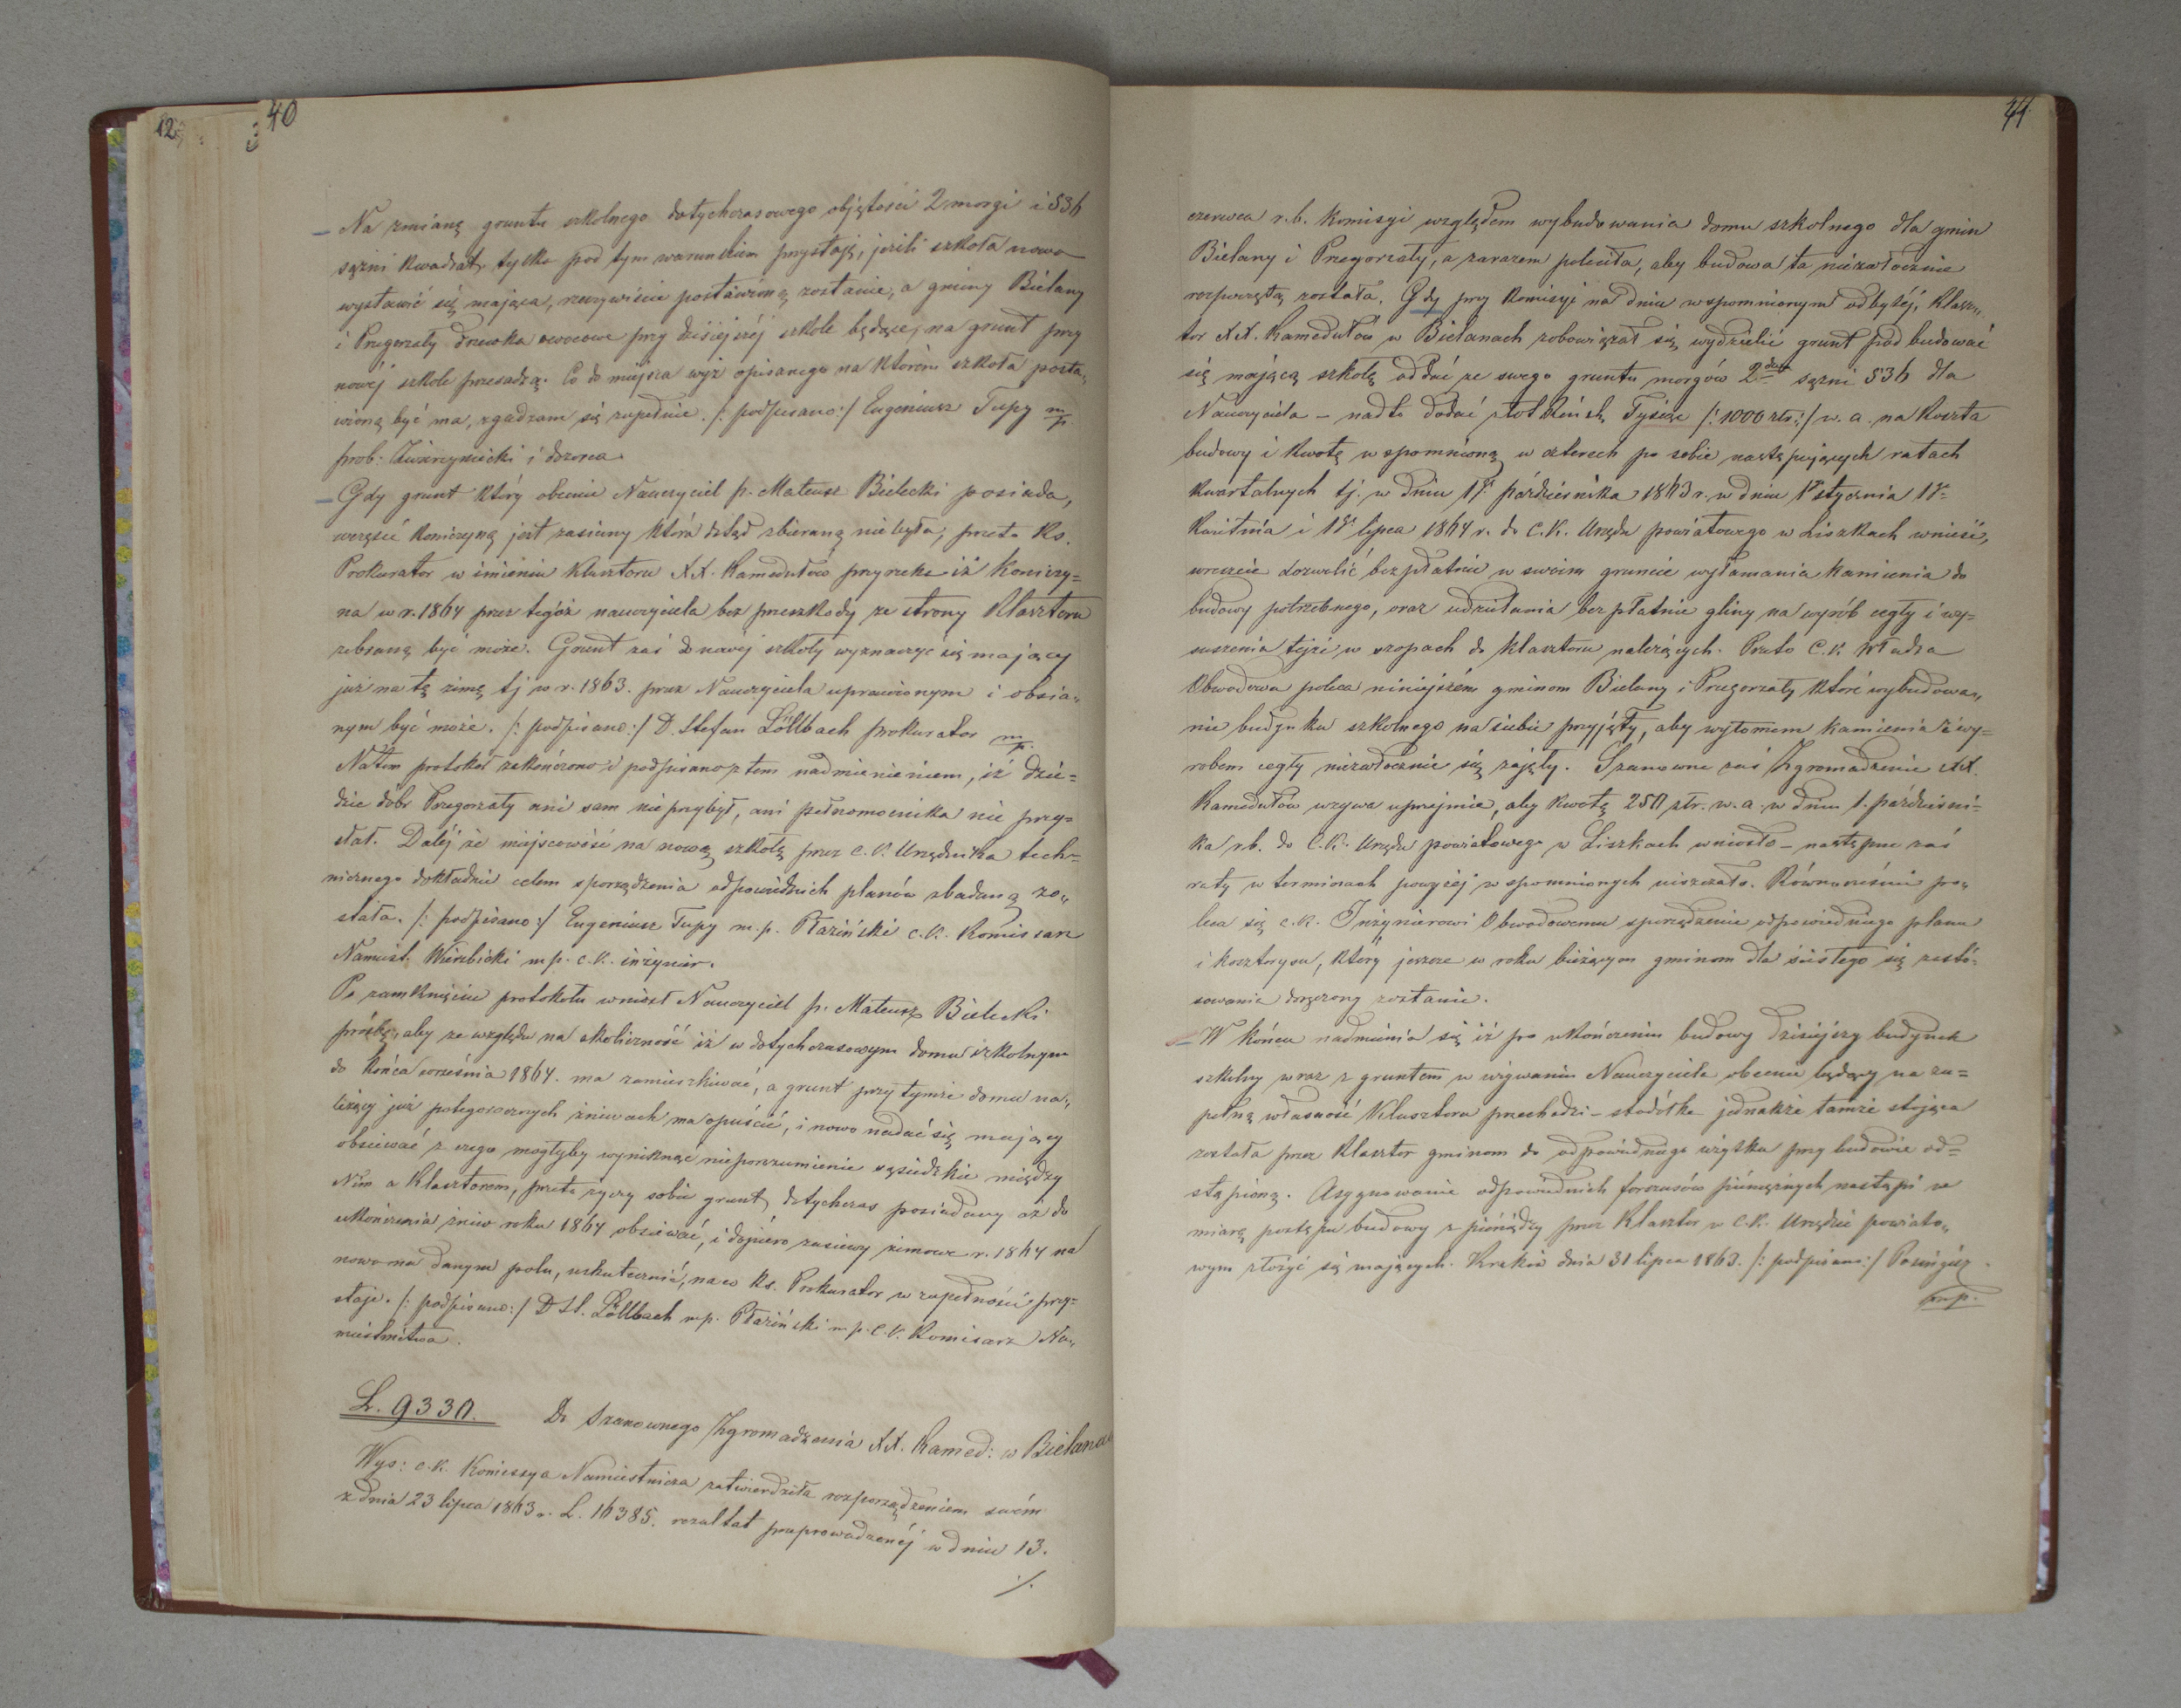 12
40
Na zmianę gruntu szkolnego dotychczasowego objętości 2 morgi i 536
sążni kwadrat. tylko pod tym warunkiem przystaję, jeżli szkoła nowo
wystawić się mająca, rzeczywiście postawioną zostanie, a gminy Bielany
i Przegorzały drzewka owocowe przy dzisiejszéj szkole będące, na grunt przy
nowéj szkole przesadzą. Co do miejsca wyż opisanego na którém szkoła posta„
wioną być ma, zgadzam się zupełnie. /: podpisano :/ Eugeniusz Tupy m/p.
prob: Zwierzyniecki i dozorca.
Gdy grunt który obecnie Nauczyciel p. Mateusz Bielecki posiada,
wczęści koniczyną jest zasiany która dotąd zbieraną nie była, przeto Ks.
Prokurator w imieniu klasztoru XX. Kamedułów przyrzeka iż koniczy=
na w r. 1864 przez tegóż nauczyciela bez przeszkody ze strony Klasztoru
zebraną być może. Grunt zaś do nowéj szkoły wyznaczyć się mający
już na tę zimę tj w r. 1863. przez Nauczyciela uprawionym i obsia„
nym być może. /: podpisano :/ D. Stefan Löllbach prokurator m/p.
Na tem protokół zakończono i podpisano z tem nadmienieniem, iż dzie=
dzic dobr Przegorzały ani sam nie przybył, ani pełnomocnika nie przy=
słał. Daléj że miejscowość na nową szkołę przez C. K. Urzędnika tech=
nicznego dokładnie celem sporządzenia odpowiednich planów zbadaną zo„
stała. /: podpisano :/ Eugeniusz Tupy m. p. Płaziński c. K. Komissarz
Namiest. Wierzbicki m p. c. K. inżynier.
Po zamknięciu protokołu wniósł Nauczyciel p. Mateusz Bielecki
prośbę, aby ze względu na okoliczność iż w dotychczasowym domu szkolnym
do końca września 1864. ma zamieszkiwać, a grunt przy tymże domu na„
leżący już potegorocznych żniwach ma opuścić, i nowo nadać się mający
obsiewać z czego mogłyby wyniknąć nieporozumienie sąsiedzkie między
Nim a Klasztorem, przeto życzy sobie grunt, dotychczas posiadany aż do
ukończenia żniw roku 1864 obsiewać, i dopiéro zasiewy zimowe r. 1864 na
nowo ma danym polu, uskutecznić, na co Ks. Prokurator w zupełności przy=
staje. /: podpisano :/ D St. Löllbach mp. Płaziński m p. C. K. Komisarz Na„
miestnictwa.
L. 9330. Do Szanownego Zgromadzenia XX. Kamed: w Bielanach
Wys: c. K. Komissya Namiestnicza zatwierdziła rozporządzeniem swém
z dnia 23 lipca 1863 r. L. 16385. rezultat przeprowadzonéj w dniu 13.
./.
41
czerwca r. b. Komisyi względem wybudowania domu szkolnego dla gmin
Bielany i Przegorzały, a zarazem poleciła, aby budowa ta niezwłocznie
rozpoczętą została. Gdy przy Komisyi na dniu wspomnionym odbytéj, Klasz„
tor XX. Kamedułów w Bielanach zobowiązał się wydzielić grunt pod budować
się mającą szkołę oddać ze swego gruntu morgów 2 sążni 536 dla
Nauczyciela – nadto dodać złot Reńsk. Tysiąc /: 1000 złr :/ w. a. na koszta
budowy i kwotę wspomnioną w czterech po sobie następujących ratach
kwartalnych tj. w dniu 1go października 1863 r. w dniu 1go stycznia 1go
kwietnia i 1go lipca 1864 r. do C. K. Urzędu powiatowego w Liszkach wnieść,
wreszcie dozwolić bezpłatnie w swoim gruncie wyłamania kamienia do
budowy potrzebnego, oraz udzielania bezpłatnie gliny na wyrób cegły i wy=
suszenia tejże w szopach do Klasztoru należących. Przeto C. K. Władza
Obwodowa poleca niniejszém gminom Bielany i Przegorzały które wybudowa„
nie budynku szkolnego na siebie przyjęły, aby wyłomem kamienia i wy=
robem cegły niezwłocznie się zajęły. Szanowne zaś Zgromadzenie XX.
Kamedułów wzywa uprzejmie, aby kwotę 250 złr. w. a. w dniu 1. październi=
ka r b. do C. K. Urzędu powiatowego w Liszkach wniosło – następne zaś
raty w terminach powyżéj wspomnionych uiszczało. Równocześnie po„
leca się c. K. Inżynierowi Obwodowemu sporządzenie odpowiedniego planu
i kosztorysu, który jeszcze w roku bieżącym gminom dla ścisłego się zasto=
sowania doręczony zostanie.
W końcu nadmienia się iż po ukończeniu budowy dzisiejszy budynek
szkolny wraz z gruntem w używaniu Nauczyciela obecnie będący na zu=
pełną własność Klasztoru przechodzi – stodółka jednakże tamże stojąca
została przez Klasztor gminom do odpowiednego użytku przy budowie od=
stąpioną. Asygnowanie odpowiednich forszusów pieniężnych nastąpi w
miarę postępu budowy z piéniędzy przez Klasztor w C. K. Urzędzie powiato„
wym złożyć się mających. Kraków dnia 31 lipca 1863. /: podpisano :/ Posinger
m. p.